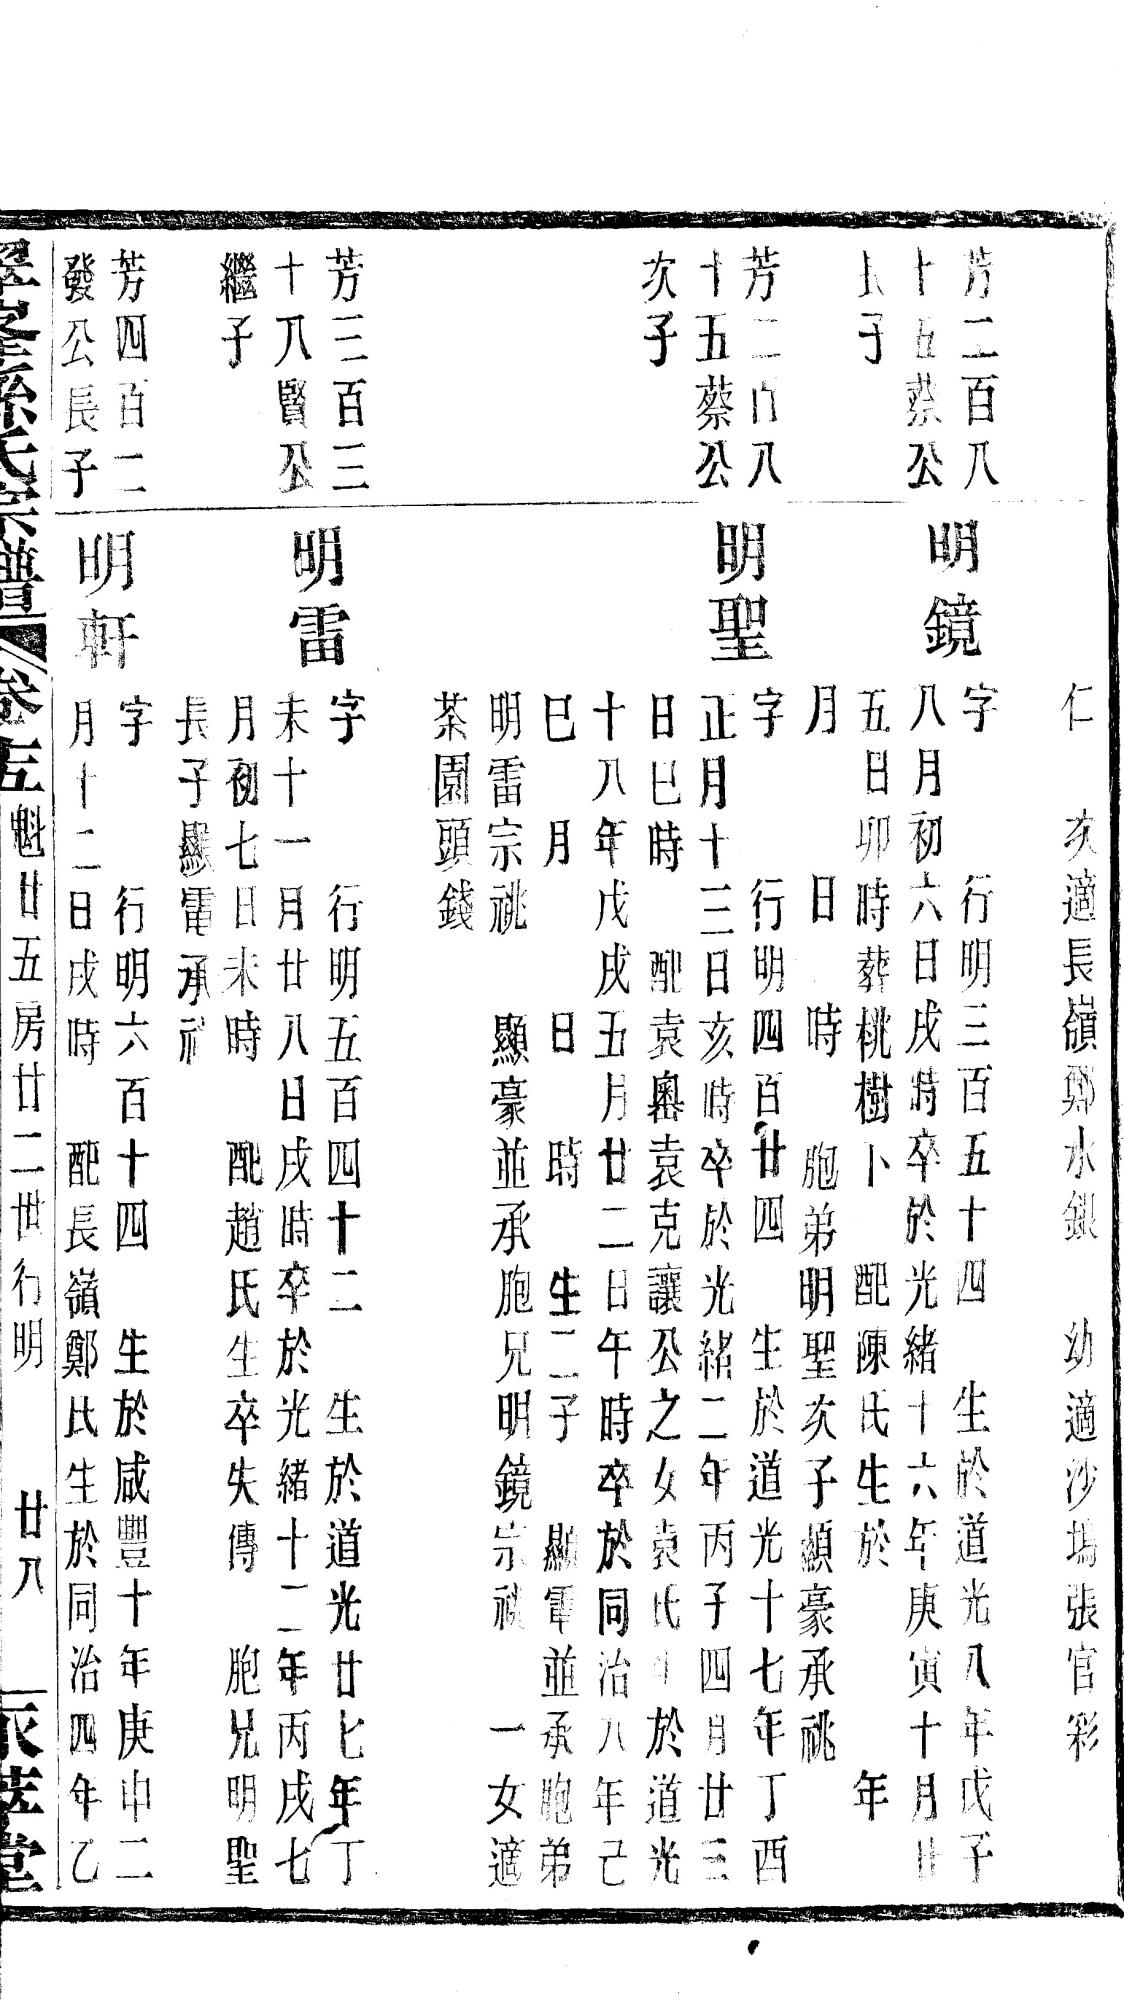 仁　次適長嶺鄭水銀　幼適沙塢張官彩
芳二百八
十五蔡公
長子
明鏡
字　行明三百五十四　生於道光八年戊子
八月初六日戌時卒於光緒十六年庚寅十月廿
五日卯時葬桃樹卜　配陳氏生於　年
月　日　時　胞弟明聖次子顯豪承祧
芳二百八
十五蔡公
次子
明聖
字　行明四百廿四　生於道光十七年丁酉
正月十三日亥時卒於光緒二年丙子四月廿三
日巳時　配袁嶴袁克讓公之女袁氏生於道光
十八年戊戌五月廿二日午時卒於同治八年己
巳　月　日　時　生二子　顯電並承胞弟
明雷宗祧　顯豪並承胞兄明鏡宗祧　一女適
茶園頭錢
芳三百三
十八賢公
繼子
明雷
字　行明五百四十二　生於道光廿七年丁
未十一月廿八日戌時卒於光緒十二年丙戌七
月初七日未時　配趙氏生卒失傳　胞兄明聖
長子顯電承祧
芳四百二
發公長子
明軒
字　行明六百十四　生於咸豐十年庚申二
月十二日戌時　配長嶺鄭氏生於同治四年乙
孫氏宗譜　卷五　魁廿五房廿二世行明　廿八　萃堂